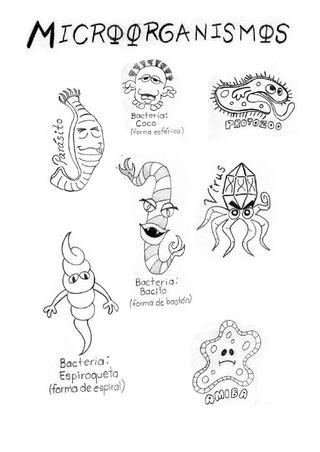 MICROORGANISMOS
Parásito
Bacteria:
Coco
(forma esférica)
PROTOZOO
Bacteria:
Bacilo
(forma de bastón)
Virus
Bacteria:
Espiroqueta
(forma de espiral)
AMIBA